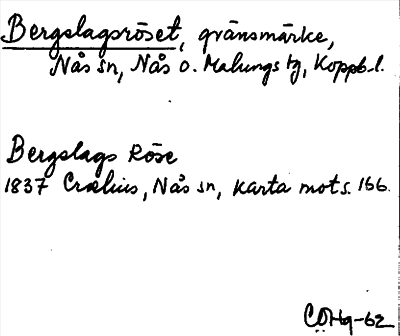 Bergslagsröset, gränsmärke,
Nås sn, Nås o. Malungs tg, Koppb. l.
Bergslags Röse
1837 Crælius, Nås sn, karta mot s. 166.
CÖHg-62